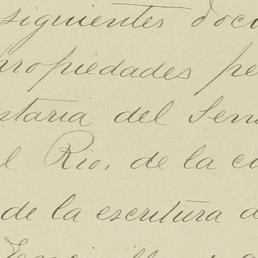 siguientes docu
propiedades pe
ntaria del Seno
el Rio, de la co
de la escritura d